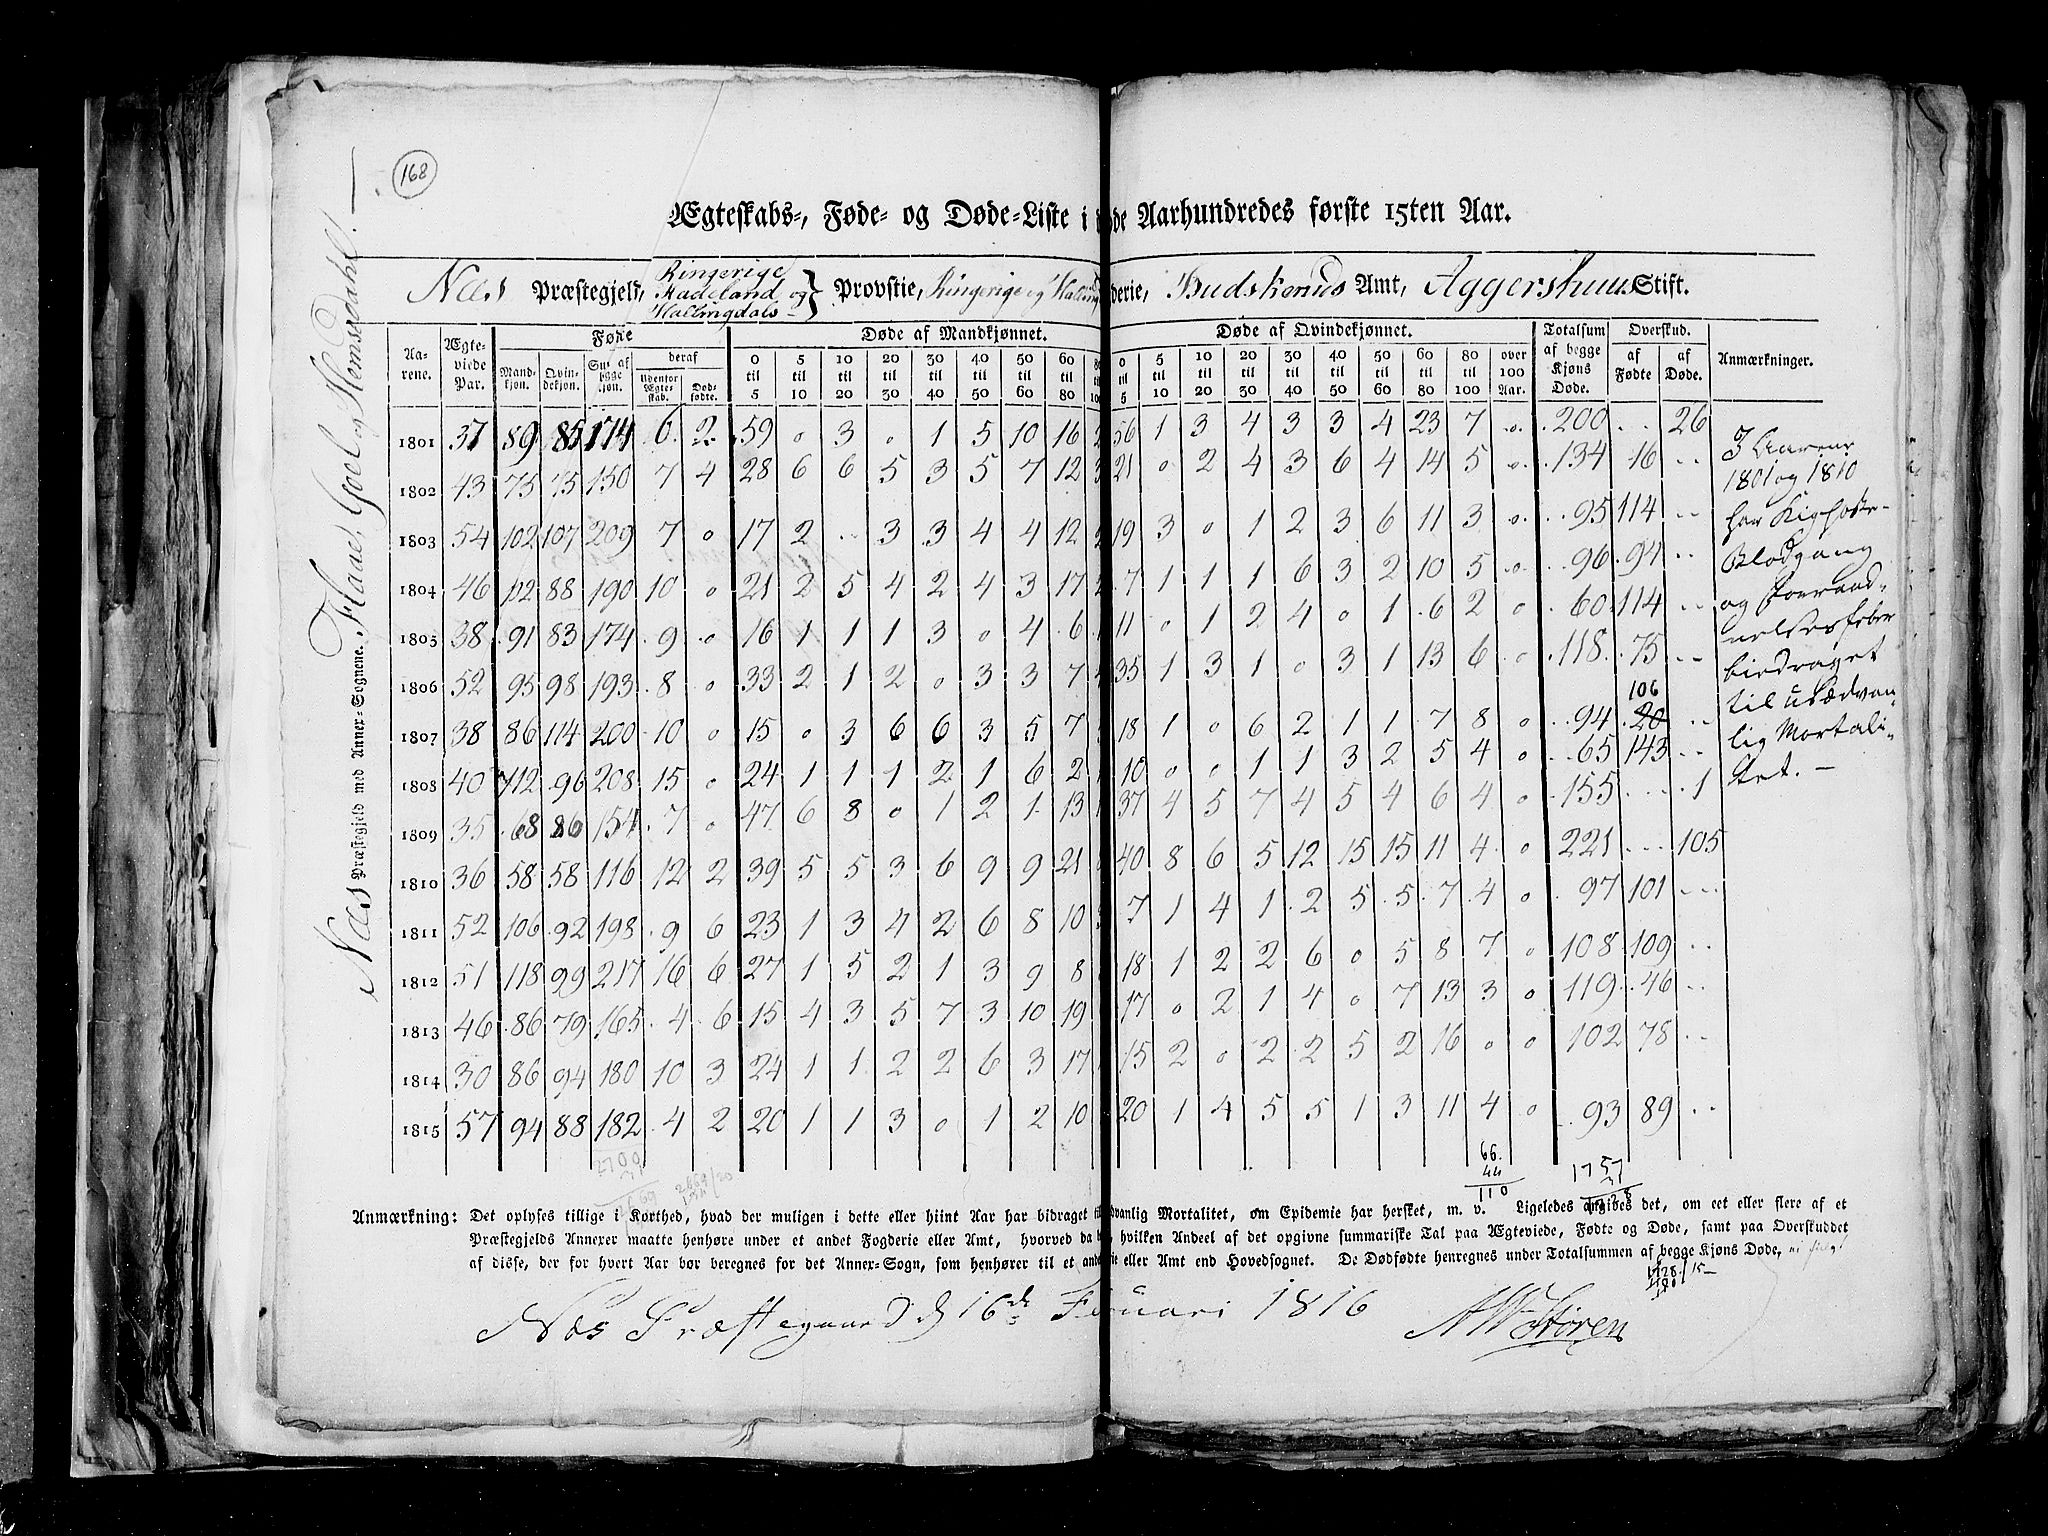 168
Ægteskabs-, Føde- og Døde-Liste i Aarhundredes første 15ten Aar.
Næs Præstegjeld, Ringerige Hadeland og Hallingdals Provstie, Ringerige og Halling derie, Budskeruds Amt, Aggershuus Stift.
Næs Præstegjeld med Annex-Sognene. Flaae, Goel og Hemsedahl.
Aa-rene. Ægte-viede Par. Føde Døde af Mandkjønnet. Døde af Qvindekjønnet. Totalsum af begge Kjøns Døde. Overskud. Anmærkninger.
Mand-kjøn. Qvin-dekjøn. Sum af begge Kjøn. deraf Udenfor Ægte-skab. Død-fødte. 0 til 5 5 til 10 10 til 20 20 til 30 30 til 40 40 til 50 50 til 60 60 til 80 0 til 5 5 til 10 10 til 20 20 til 30 30 til 40 40 til 50 50 til 60 60 til 80 80 til 100 over 100 Aar. af Fødte af Døde.
1801 37 89 85 174 6 2 59 0 3 0 1 5 10 16 2 56 1 3 4 3 3 4 23 7 0 200 26
1802 43 75 75 150 7 4 28 6 6 5 3 5 7 12 3 21 0 2 4 3 6 4 14 5 0 134 16
1803 54 102 107 209 7 0 17 2 3 3 4 4 12 2 19 3 0 1 2 3 6 11 3 0 95 114
1804 46 102 88 190 10 0 21 2 5 4 2 4 3 17 2 7 1 1 1 6 3 2 10 5 0 96 94
1805 38 91 83 174 9 0 16 1 1 1 3 0 4 6 11 0 1 2 4 0 1 6 2 0 60 114
1806 52 95 98 193 8 0 33 2 1 2 0 3 3 7 35 1 3 1 0 3 1 13 6 0 118 75
106
1807 38 86 114 200 10 0 15 0 3 6 6 3 5 7 18 1 0 6 2 1 1 7 8 0 94 20
1808 40 112 96 208 15 0 24 1 1 1 2 1 6 2 10 0 0 1 1 3 2 5 4 0 65 143
1809 35 68 86 154 7 0 47 6 8 0 1 2 1 13 37 4 5 7 4 5 4 6 4 0 155 1
1810 36 58 58 116 12 2 39 5 5 3 6 9 9 21 40 8 6 5 12 15 15 11 4 0 221 105
1811 52 106 92 198 9 6 23 1 3 4 2 6 8 10 7 1 4 1 2 5 5 7 4 0 97 101
1812 51 118 99 217 16 6 27 1 5 2 1 3 9 8 18 1 2 2 6 0 5 8 7 0 108 109
1813 46 86 79 165 4 6 15 4 3 5 7 3 10 19 17 0 2 1 4 0 7 13 3 0 119 46
1814 30 86 94 180 10 3 24 1 1 2 2 6 3 17 15 2 0 2 2 5 2 16 0 0 102 78
1815 57 94 88 182 4 2 20 1 1 3 0 1 2 10 20 1 4 5 5 1 3 11 4 0 93 89
I Aarene
1801 og 1810
har Kighoste-
Blodgang
og Forraad-
nelsesfeber
bidraget
til usædvan-
lig Mortali-
tet. —
2700
66.
44
110
1757
Anmærkning: Det oplyses tillige i Korthed, hvad der muligen i dette eller hiint Aar har bidraget til dvanlig Mortalitet, om Epidemie har hersket, m. v. Ligeledes angives det, om eet eller flere af et
Præstegjelds Annexer maatte henhøre under et andet Fogderie eller Amt, hvorved da hvilken Andeel af det opgivne summariske Tal paa Ægteviede, Fødte og Døde, samt paa Overskuddet
af disse, der for hvert Aar bør beregnes for det Annex-Sogn, som henhører til et eller Amt end Hovedsognet. De Dødfødte henregnes under Totalsummen af begge Kjøns Døde,
Næs Præstegaard d 16de Februari 1816